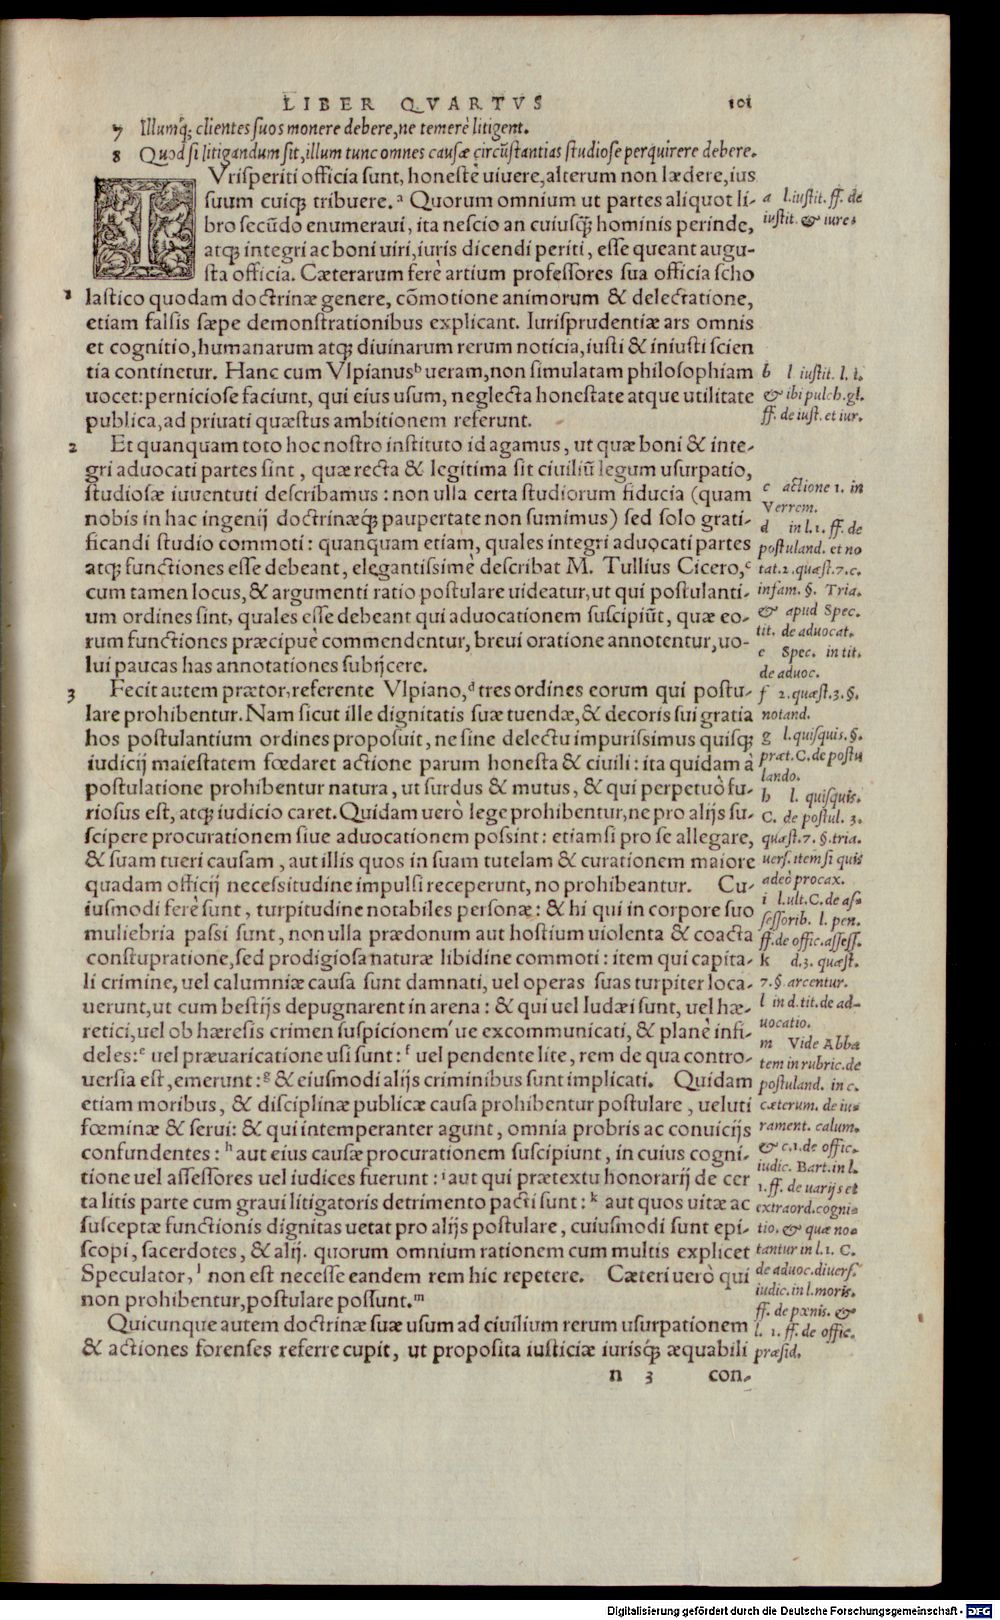 LIBER QVARTVS 101
7 Illumq́; clientes suos monere debere, ne temerè litigent.
8 Quod si litigandum sit, illum tunc omnes causæ circũstantias studiose perquirere debere.
IVrisperiti officia sunt, honestè uiuere, alterum non lædere, ius
suum cuiq; tribuere.ᵃ Quorum omnium ut partes aliquot li-
bro secũdo enumeraui, ita nescio an cuiusq́; hominis perinde,
atq; integri ac boni uiri, iuris dicendi periti, esse queant augu-
sta officia. Cæterarum ferè artium professores sua officia scho
1 lastico quodam doctrinæ genere, cõmotione animorum & delectatione,
etiam falsis sæpe demonstrationibus explicant. Iurisprudentiæ ars omnis
et cognitio, humanarum atq; diuinarum rerum noticia, iusti & iniusti scien
tia continetur. Hanc cum Vlpianusᵇ ueram, non simulatam philosophiam
uocet: perniciose faciunt, qui eius usum, neglecta honestate atque utilitate
publica, ad priuati quæstus ambitionem referunt.
2 Et quanquam toto hoc nostro instituto id agamus, ut quæ boni & inte-
gri aduocati partes sint, quæ recta & legitima sit ciuiliũ legum usurpatio,
studiosæ iuuentuti describamus: non ulla certa studiorum fiducia (quam
nobis in hac ingenij doctrinæq́; paupertate non sumimus) sed solo grati-
ficandi studio commoti: quanquam etiam, quales integri aduocati partes
atq; functiones esse debeant, elegantissimè describat M. Tullius Cicero,ᶜ
cum tamen locus, & argumenti ratio postulare uideatur, ut qui postulanti-
um ordines sint, quales esse debeant qui aduocationem suscipiũt, quæ eo-
rum functiones præcipuè commendentur, breui oratione annotentur, uo-
lui paucas has annotationes subijcere.
3 Fecit autem prætor, referente Vlpiano,ᵈ tres ordines eorum qui postu-
lare prohibentur. Nam sicut ille dignitatis suæ tuendæ, & decoris sui gratia
hos postulantium ordines proposuit, ne sine delectu impurissimus quisq;
iudicij maiestatem fœdaret actione parum honesta & ciuili: ita quidam à
postulatione prohibentur natura, ut surdus & mutus, & qui perpetuò fu-
riosus est, atq; iudicio caret. Quidam uerò lege prohibentur, ne pro alijs su-
scipere procurationem siue aduocationem possint: etiamsi pro se allegare,
& suam tueri causam, aut illis quos in suam tutelam & curationem maiore
quadam officij necessitudine impulsi receperunt, no prohibeantur. Cu-
iusmodi ferè sunt, turpitudine notabiles personæ: & hi qui in corpore suo
muliebria passi sunt, non ulla prædonum aut hostium uiolenta & coacta
constupratione, sed prodigiosa naturæ libidine commoti: item qui capita-
li crimine, uel calumniæ causa sunt damnati, uel operas suas turpiter loca-
uerunt, ut cum bestijs depugnarent in arena: & qui uel Iudæi sunt, uel hæ-
retici, uel ob hæresis crimen suspicionem'ue excommunicati, & planè infi-
deles:ᵉ uel præuaricatione usi sunt:ᶠ uel pendente lite, rem de qua contro-
uersia est, emerunt:ᵍ & eiusmodi alijs criminibus sunt implicati. Quidam
etiam moribus, & disciplinæ publicæ causa prohibentur postulare, ueluti
fœminæ & serui: & qui intemperanter agunt, omnia probris ac conuicijs
confundentes:ʰ aut eius causæ procurationem suscipiunt, in cuius cogni-
tione uel assessores uel iudices fuerunt:ⁱ aut qui prætextu honorarij de cer
ta litis parte cum graui litigatoris detrimento pacti sunt:ᵏ aut quos uitæ ac
susceptæ functionis dignitas uetat pro alijs postulare, cuiusmodi sunt epi-
scopi, sacerdotes, & alij. quorum omnium rationem cum multis explicet
Speculator,ˡ non est necesse eandem rem hic repetere. Cæteri uerò qui
non prohibentur, postulare possunt.ᵐ
Quicunque autem doctrinæ suæ usum ad ciuilium rerum usurpationem
& actiones forenses referre cupit, ut proposita iusticiæ iurisq́; æquabili
n 3 con-
a l. iustit. ff. de
iustit. & iure.
b l. iustit. l. 1.
& ibi pulch. gl.
ff. de iust. et iur.
c actione 1. in
Verrem.
d in l. 1. ff. de
postuland. et no
tat. 2. quæst. 7. c.
infam. §. Tria.
& apud Spec.
tit. de aduocat.
e Spec. in tit.
de aduoc.
f 2. quæst. 3. §.
notand.
g l. quisquis. §.
præt. C. de postu
lando.
h l. quisquis.
C. de postul. 3.
quæst. 7. §. tria.
uers. item si quis
adeò procax.
i l. ult. C. de as-
sessorib. l. pen.
ff. de offic. assess.
k d. 3. quæst.
7. §. arcentur.
l in d. tit. de ad-
uocatio.
m Vide Abba
tem in rubric. de
postuland. in c.
cæterum. de iu-
rament. calum.
& c. 1. de offic.
iudic. Bart. in l.
1. ff. de uarijs et
extraord. cogni-
tio. & quæ no-
tantur in l. 1. C.
de aduoc. diuers.
iudic. in l. moris.
ff. de pœnis. &
l. 1. ff. de offic.
præsid.
Digitalisierung gefördert durch die Deutsche Forschungsgemeinschaft - DFG